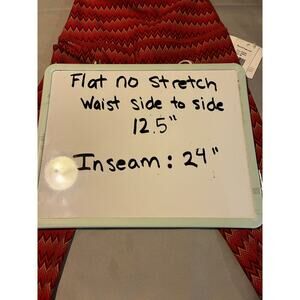 Flat no Stretch
Waist side to side
12.5"
Inseam: 24"